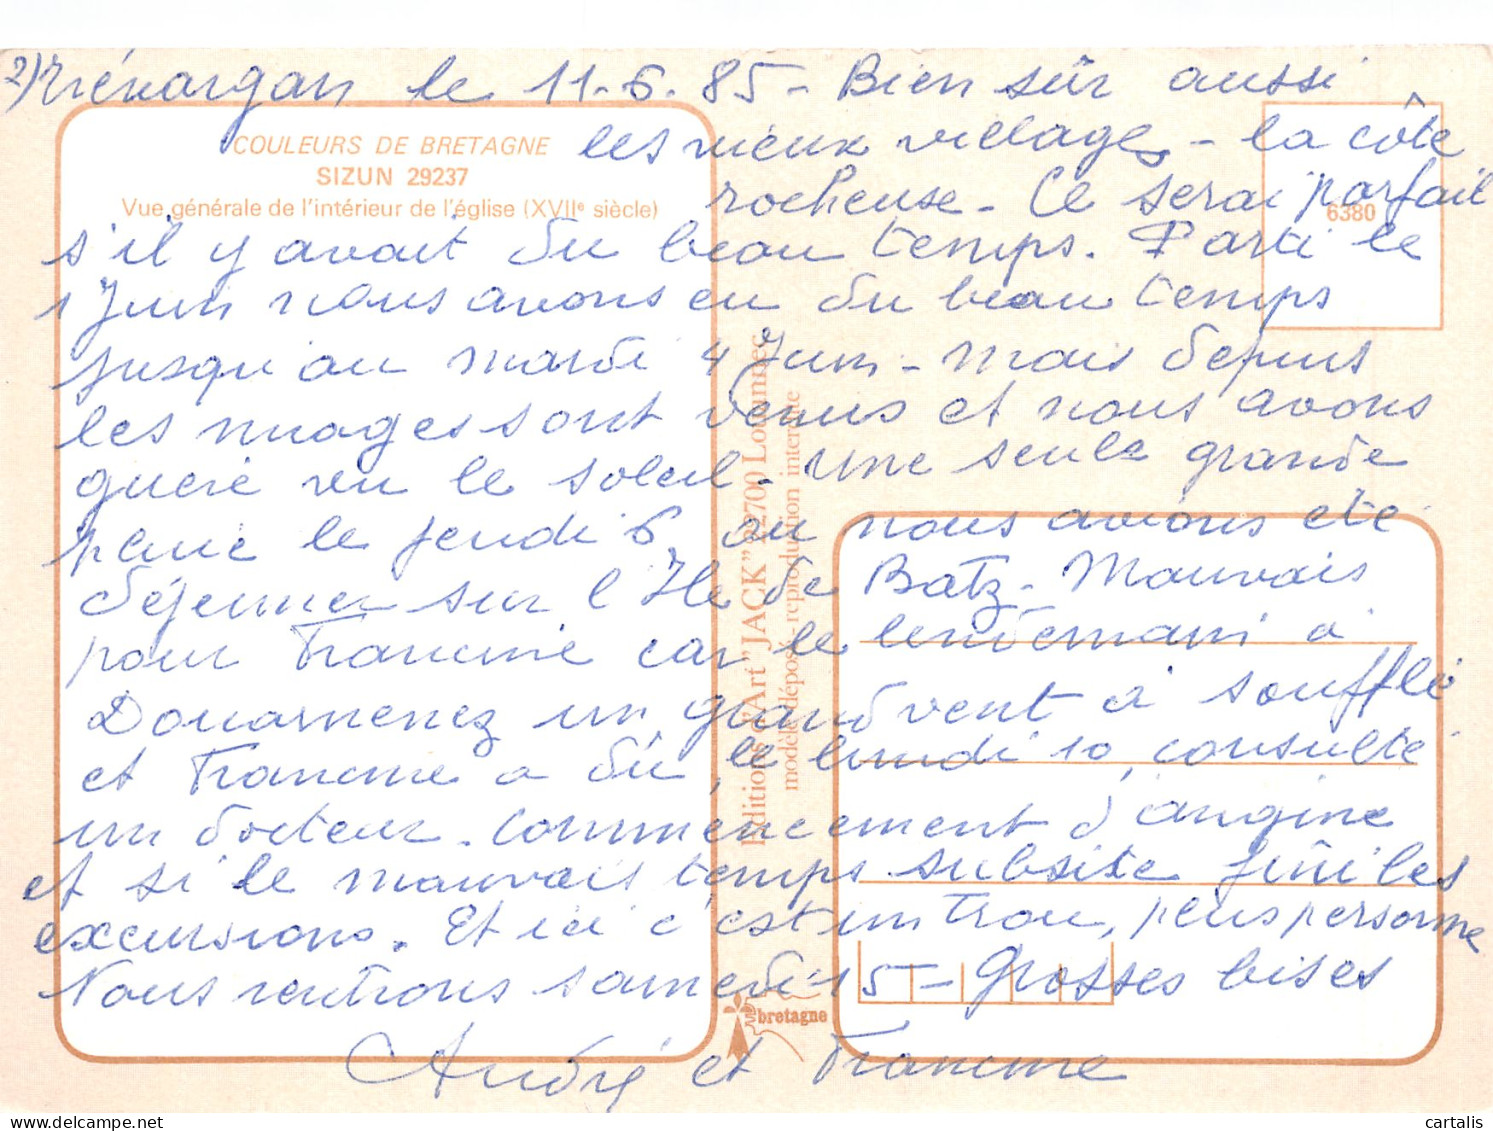 2) Trévargan le 11-6.85 - Bien sûr aussi
COULEURS DE BRETAGNE
SIZUN 29237
Vue générale de l'intérieur de l'église (XVIIe siècle)
6380
les vieux villages - la côte
rocheuse - Ce serai parfait
s'il y avait du beau temps. Parti le
1 Juin nous avons eu du beau temps
jusqu'au mardi 4 Juin - mais depuis
les nuages sont venus et nous avons
guère vu le soleil - une seule grande
pluie le jeudi 6, ou nous avions été
déjeuner sur l'Ile de Batz - Mauvais
pour Francine car le lendemain à
Douarnenez un grand vent à soufflé
et Francine a dû, le lundi 10, consulté
un docteur. Commencement d'angine
et si le mauvais temps subsite fini les
excursions. Et ici c'est un trou, plus personne
Nous rentrons samedi 15 - Grosses bises
André et Francine
Editions d'Art "JACK" 22700 Louannec
modèle déposé - reproduction interdite
bretagne
cartalis